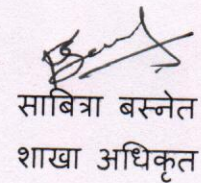 साबित्रा बस्नेत
शाखा अधिकृत